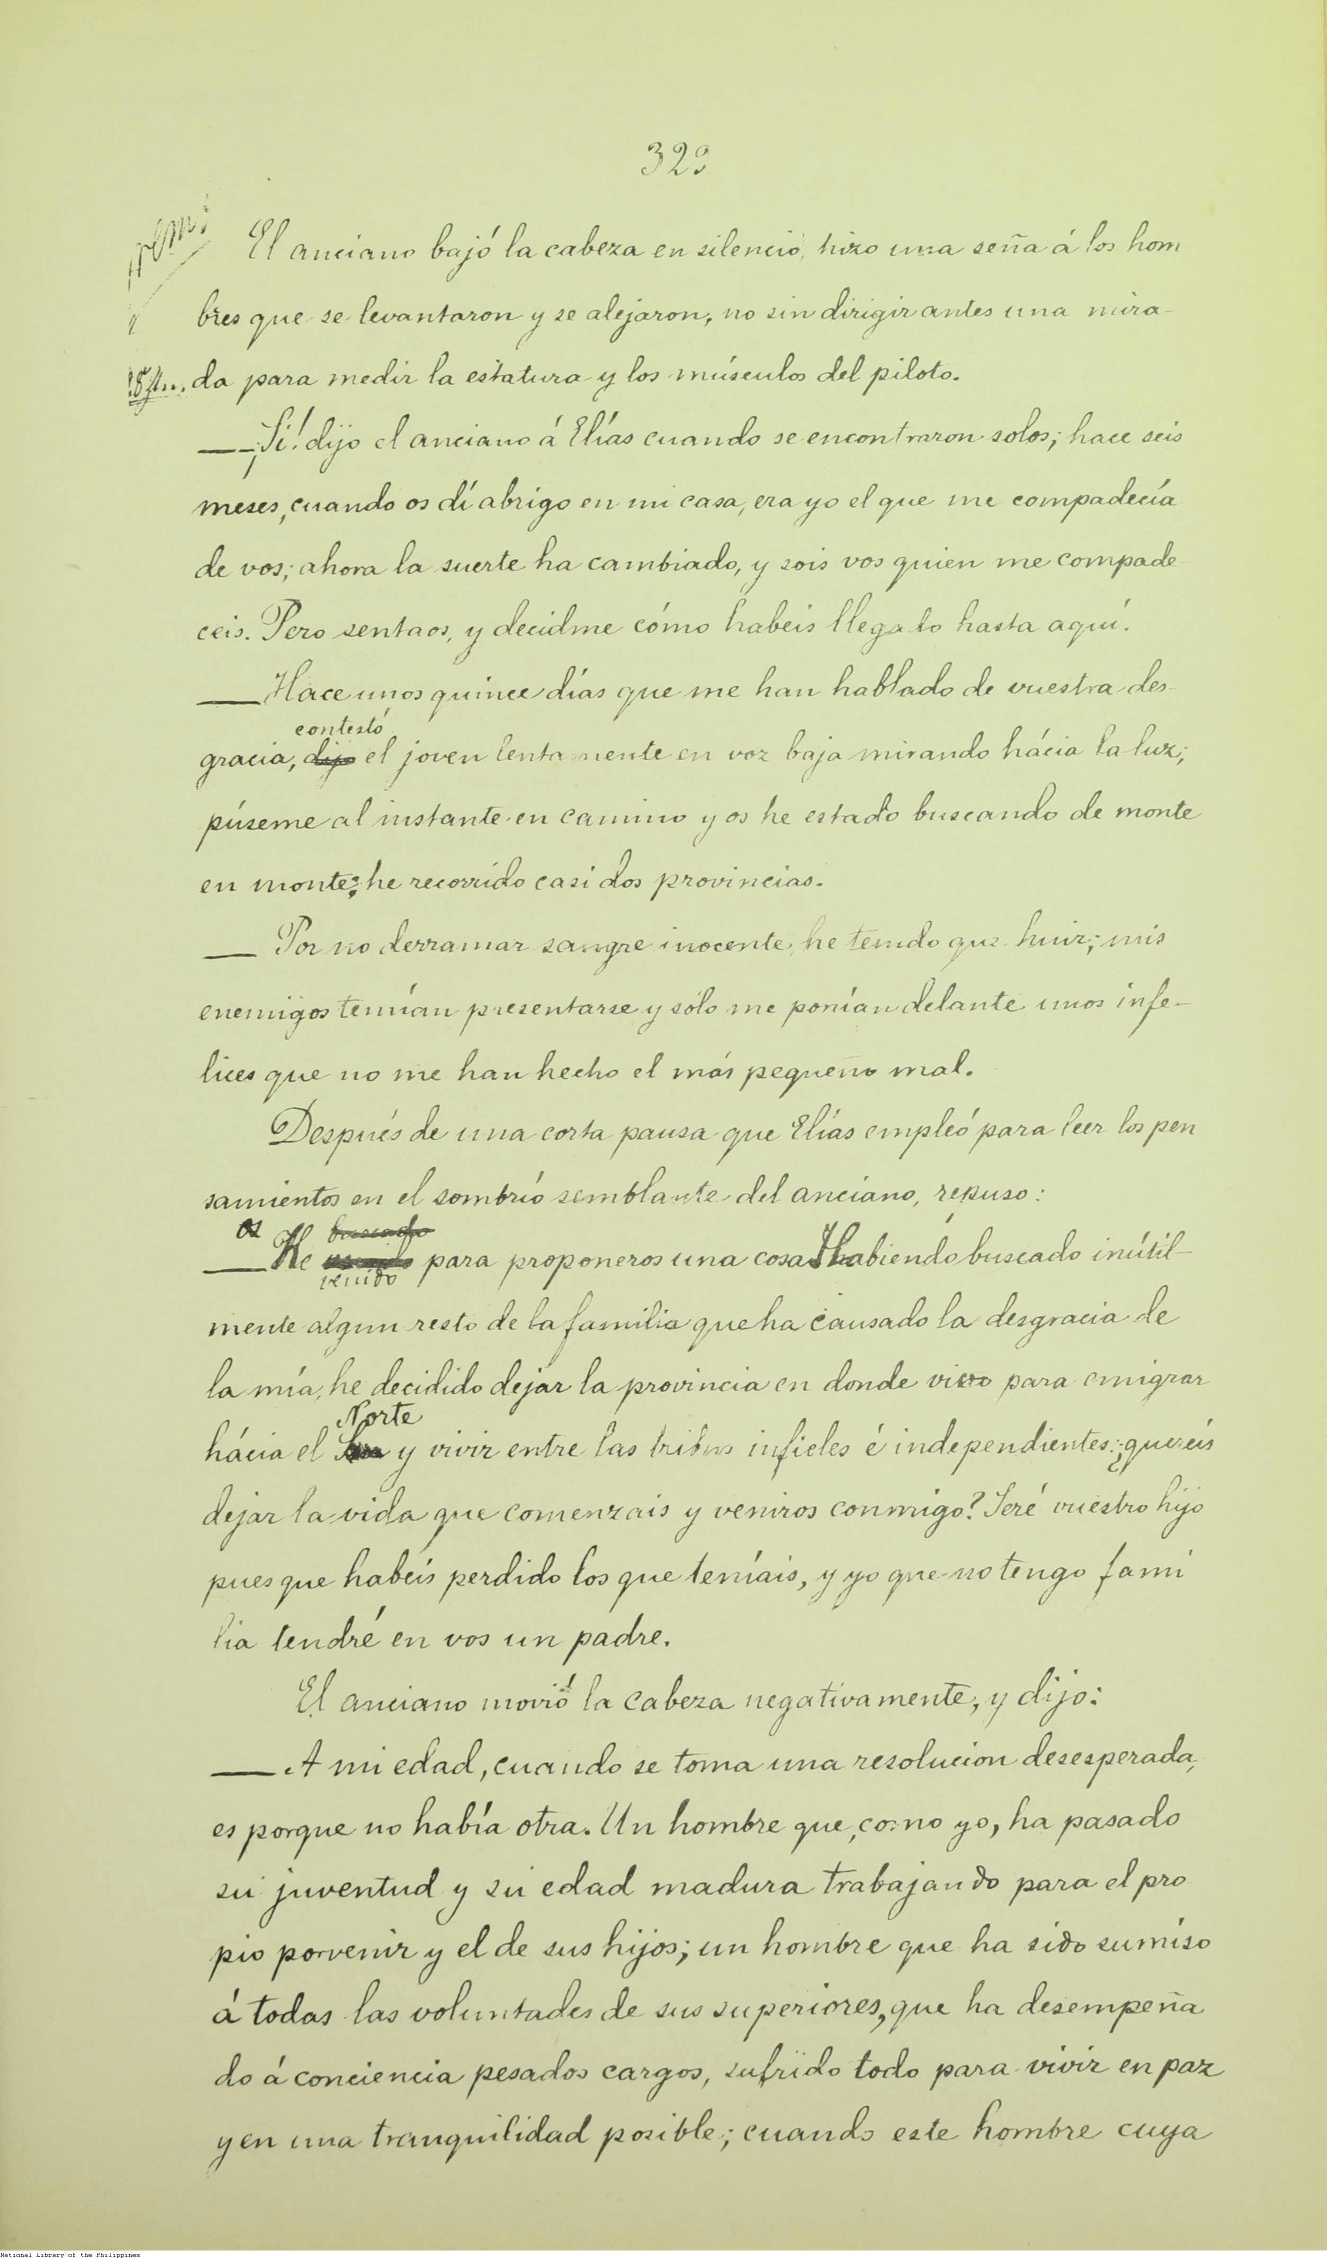 323
El anciano bajó la cabeza en silencio, hizo una seña á los hom
bres que se levantaron y se alejaron, no sin dirigir antes una mira-
da para medir la estatura y los músculos del piloto.
—¡Sí! dijo el anciano á Elías cuando se encontraron solos; hace seis
meses, cuando os dí abrigo en mi casa, era yo el que me compadecía
de vos; ahora la suerte ha cambiado, y sois vos quien me compade
ceis. Pero sentaos, y decidme cómo habeis llegado hasta aquí.
—Hace unos quince días que me han hablado de vuestra des-
contestó
gracia, dijo el joven lentamente en voz baja mirando hácia la luz;
púseme al instante en camino y os he estado buscando de monte
en monte; he recorrido casi dos provincias.
— Por no derramar sangre inocente, he tenido que huir; mis
enemigos temían presentarse y sólo me ponían delante unos infe-
lices que no me han hecho el más pequeño mal.
Después de una corta pausa que Elías empleó para leer los pen
samientos en el sombrío semblante del anciano, repuso:
os buscado
—He para proponeros una cosa. Habiendo buscado inútil-
venido
mente algun resto de la familia que ha causado la desgracia de
la mía, he decidido dejar la provincia en donde vivo para emigrar
Norte
hácia el y vivir entre las tribus infieles é independientes: ¿quereis
dejar la vida que comenzais y veniros conmigo? Seré vuestro hijo
pues que habeis perdido los que teníais, y yo que no tengo fami
lia tendré en vos un padre.
El anciano movió la cabeza negativamente, y dijo:
— A mi edad, cuando se toma una resolucion desesperada,
es porque no había otra. Un hombre que, como yo, ha pasado
su juventud y su edad madura trabajando para el pro
pio porvenir y el de sus hijos; un hombre que ha sido sumiso
á todas las voluntades de sus superiores, que ha desempeña
do á conciencia pesados cargos, sufrido todo para vivir en paz
y en una tranquilidad posible; cuando este hombre cuya
National Library of the Philippines